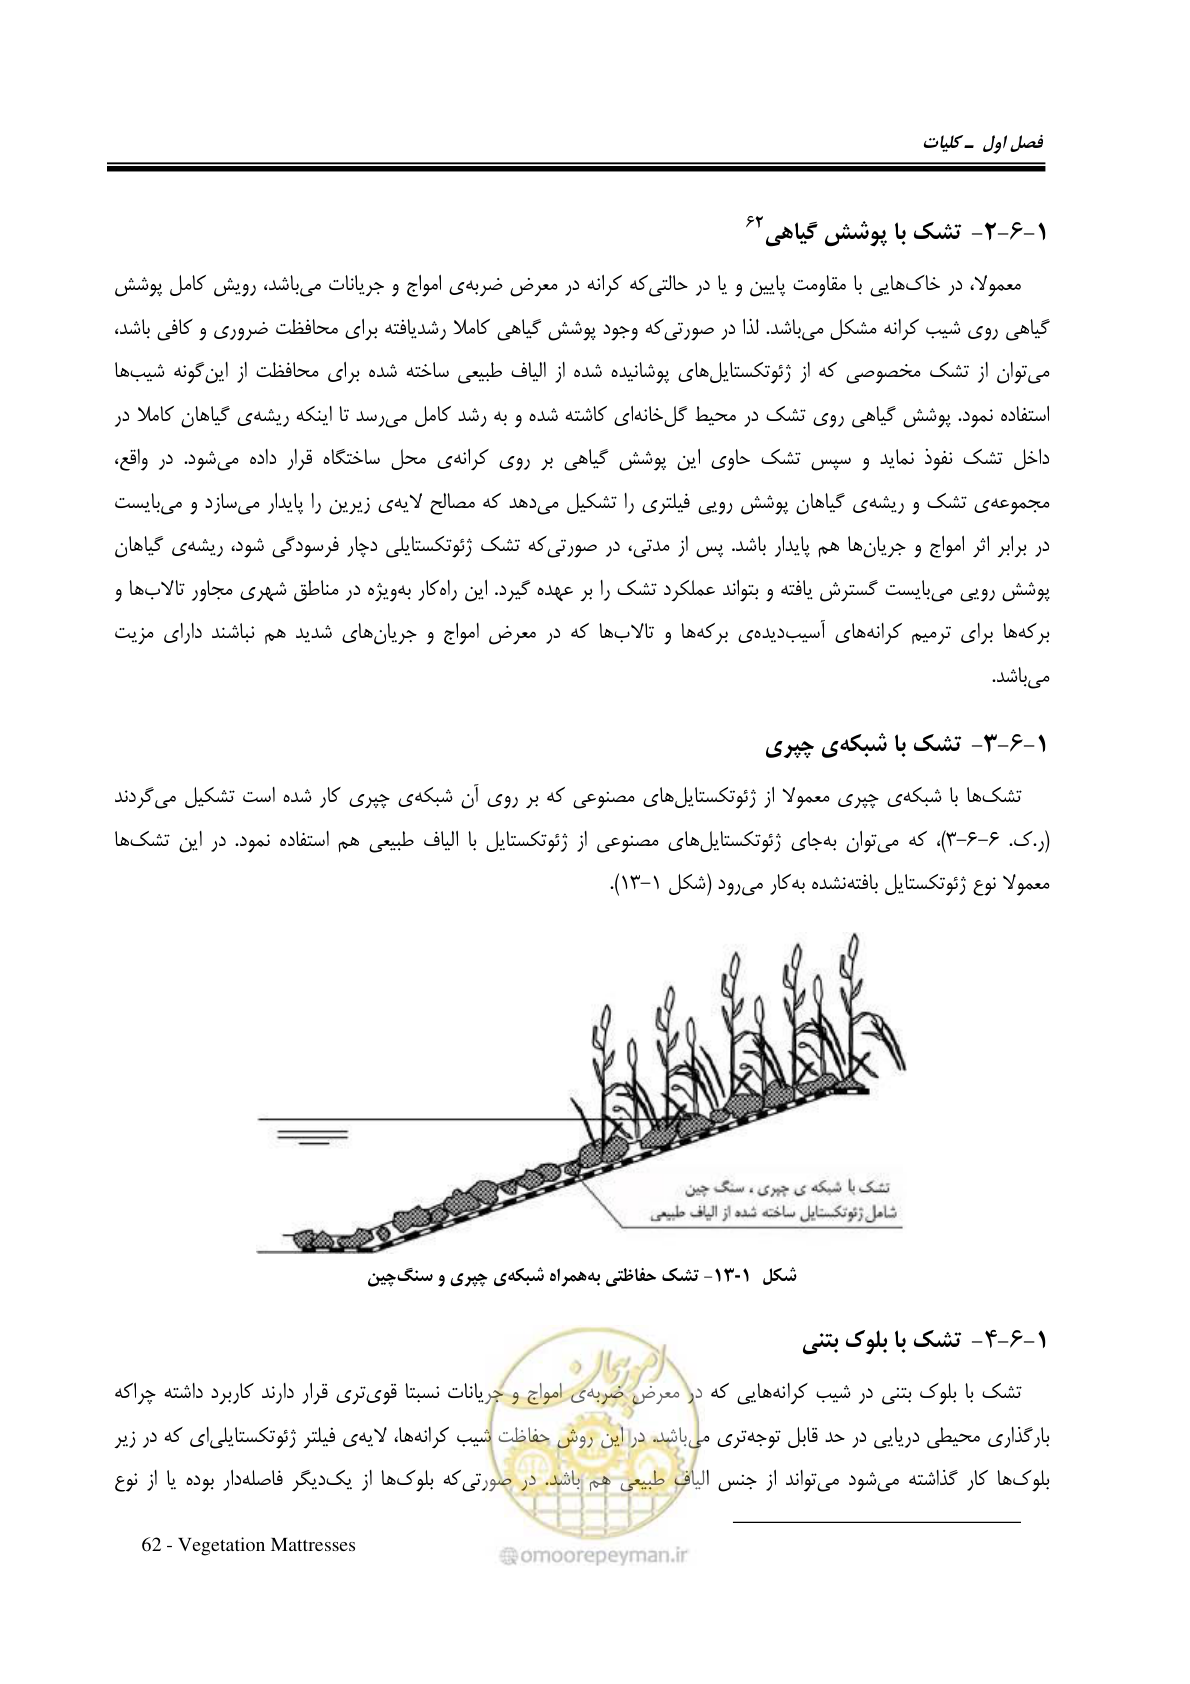 فصل اول ـ کلیات
۱-۶-۲- تشک با پوشش گیاهی۶۲
معمولا، در خاک‌هایی با مقاومت پایین و یا در حالتی‌که کرانه در معرض ضربه‌ی امواج و جریانات می‌باشد، رویش کامل پوشش
گیاهی روی شیب کرانه مشکل می‌باشد. لذا در صورتی‌که وجود پوشش گیاهی کاملا رشدیافته برای محافظت ضروری و کافی باشد،
می‌توان از تشک مخصوصی که از ژئوتکستایل‌های پوشانیده شده از الیاف طبیعی ساخته شده برای محافظت از این‌گونه شیب‌ها
استفاده نمود. پوشش گیاهی روی تشک در محیط گل‌خانه‌ای کاشته شده و به رشد کامل می‌رسد تا اینکه ریشه‌ی گیاهان کاملا در
داخل تشک نفوذ نماید و سپس تشک حاوی این پوشش گیاهی بر روی کرانه‌ی محل ساختگاه قرار داده می‌شود. در واقع،
مجموعه‌ی تشک و ریشه‌ی گیاهان پوشش رویی فیلتری را تشکیل می‌دهد که مصالح لایه‌ی زیرین را پایدار می‌سازد و می‌بایست
در برابر اثر امواج و جریان‌ها هم پایدار باشد. پس از مدتی، در صورتی‌که تشک ژئوتکستایلی دچار فرسودگی شود، ریشه‌ی گیاهان
پوشش رویی می‌بایست گسترش یافته و بتواند عملکرد تشک را بر عهده گیرد. این راه‌کار به‌ویژه در مناطق شهری مجاور تالاب‌ها و
برکه‌ها برای ترمیم کرانه‌های آسیب‌دیده‌ی برکه‌ها و تالاب‌ها که در معرض امواج و جریان‌های شدید هم نباشند دارای مزیت
می‌باشد.
۱-۶-۳- تشک با شبکه‌ی چپری
تشک‌ها با شبکه‌ی چپری معمولا از ژئوتکستایل‌های مصنوعی که بر روی آن شبکه‌ی چپری کار شده است تشکیل می‌گردند
(ر.ک. ۶-۶-۳)، که می‌توان به‌جای ژئوتکستایل‌های مصنوعی از ژئوتکستایل با الیاف طبیعی هم استفاده نمود. در این تشک‌ها
معمولا نوع ژئوتکستایل بافته‌نشده به‌کار می‌رود (شکل ۱-۱۳).
تشک با شبکه ی چپری ، سنگ چین
شامل ژئوتکستایل ساخته شده از الیاف طبیعی
شکل ۱-۱۳- تشک حفاظتی به‌همراه شبکه‌ی چپری و سنگ‌چین
۱-۶-۴- تشک با بلوک بتنی
تشک با بلوک بتنی در شیب کرانه‌هایی که در معرض ضربه‌ی امواج و جریانات نسبتا قوی‌تری قرار دارند کاربرد داشته چراکه
بارگذاری محیطی دریایی در حد قابل توجه‌تری می‌باشد. در این روش حفاظت شیب کرانه‌ها، لایه‌ی فیلتر ژئوتکستایلی‌ای که در زیر
بلوک‌ها کار گذاشته می‌شود می‌تواند از جنس الیاف طبیعی هم باشد. در صورتی‌که بلوک‌ها از یک‌دیگر فاصله‌دار بوده یا از نوع
62 - Vegetation Mattresses
امور پیمان
@omoorepeyman.ir